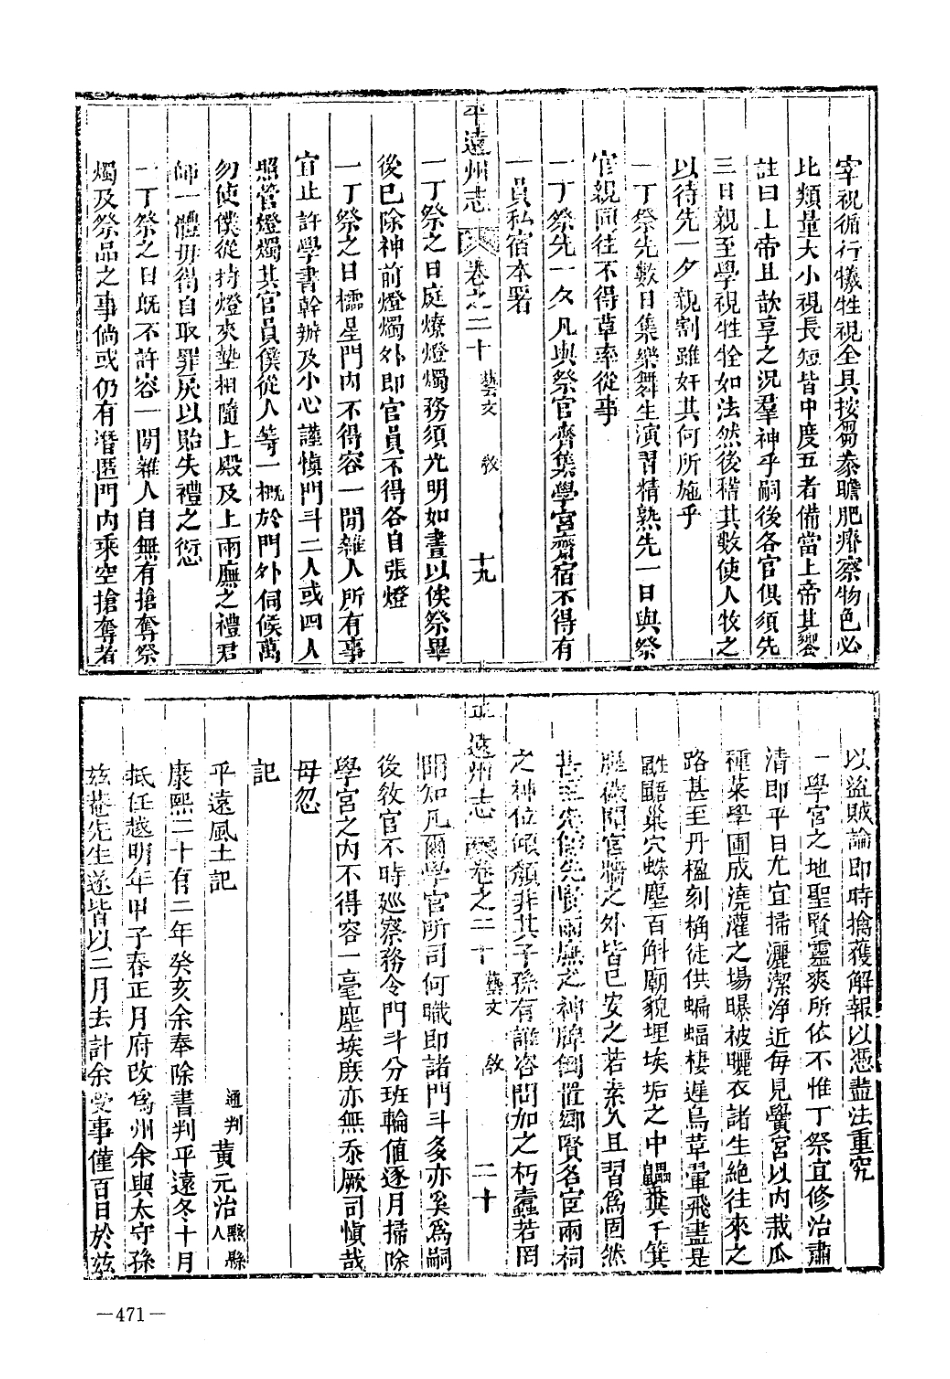 宰視循行犧牲視全具按芻豢瞻肥瘠察物色必
比類量大小視長短皆中度五者備當上帝其饗
註曰上帝且歆享之况羣神乎嗣後各官俱須先
三日親至學視牲牷如法然後稽其數使人牧之
以待先一夕親割雖奸其何所施乎
一丁祭先數日集樂舞生演習精熟先一日與祭
官親面往不得草率從事
一丁祭先一夕凡與祭官齊集學宮齋宿不得有
一員私宿本署
平遠州志 卷之二十 藝文 教 十九
一丁祭之日庭燎燈燭務須光明如晝以俟祭畢
後已除神前燈燭外即官員不得各自張燈
一丁祭之日櫺星門内不得容一閒雜人所有事
宜止許學書幹辦及小心謹慎門斗二人或四人
照管燈燭其官員僕從人等一概於門外伺候萬
勿使僕從持燈夾墊相隨上殿及上兩廡之禮君
師一體毋得自取罪戾以貽失禮之愆
一丁祭之日既不許容一閒雜人自無有搶奪祭
燭及祭品之事倘或仍有潛匿門内乘空搶奪者
以盜賊論即時擒獲解報以憑盡法重究
一學宮之地聖賢靈爽所依不惟丁祭宜修治肅
清即平日尤宜掃灑潔淨近每見黌宮以内栽瓜
種菜學圃成澆灌之場曝被曬衣諸生絶往來之
路甚至丹楹刻桷徒供蝙蝠棲遲鳥革翬飛盡是
鼪鼯巢穴蛛塵百斛廟貌埋埃垢之中鼯糞千箕
牆宮牆之外皆已安之若素人且習爲固然
甚至先儒先賢兩廡之神牌倒置鄉賢名宦兩祠
之神位傾頹非其子孫有誰咨問加之朽蠹若罔
平遠州志 卷之二十 藝文 教 二十
聞知凡爾學官所司何職即諸門斗多亦奚爲嗣
後教官不時廵察務令門斗分班輪値逐月掃除
學宮之内不得容一毫塵埃庶亦無忝厥司愼哉
毋忽
記
平遠風土記 通判黃元治黟縣人
康熙二十有二年癸亥余奉除書判平遠冬十月
抵任越明年甲子春正月府改爲州余與太守孫
兹菴先生遂皆以二月去計余受事僅百日於兹
—471—